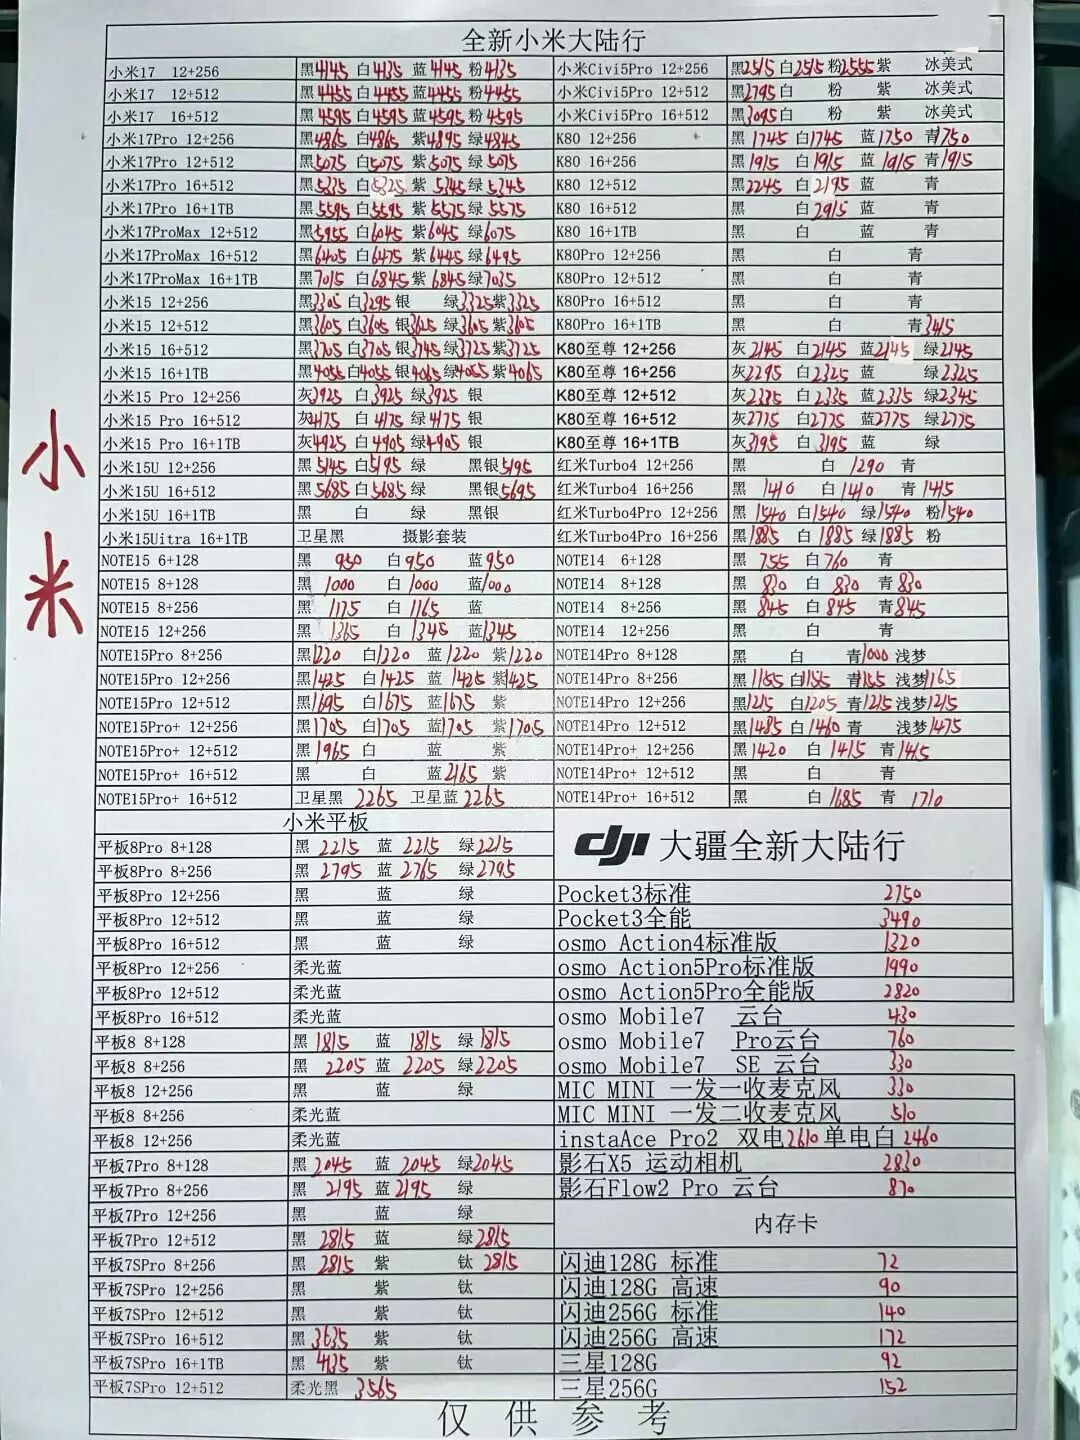 全新小米大陆行
小米17 12+256 黑4145 白4135 蓝4145 粉4135 小米Civi5Pro 12+256 黑2515 白2515 粉2555 紫 冰美式
小米17 12+512 黑4455 白4455 蓝4455 粉4455 小米Civi5Pro 12+512 黑2795 白 粉 紫 冰美式
小米17 16+512 黑4595 白4595 蓝4595 粉4595 小米Civi5Pro 16+512 黑3095 白 粉 紫 冰美式
小米17Pro 12+256 黑4865 白4865 紫4895 绿4845 K80 12+256 黑1745 白1745 蓝1750 青1750
小米17Pro 12+512 黑5075 白5075 紫5075 绿5075 K80 16+256 黑1915 白1915 蓝1915 青1915
小米17Pro 16+512 黑5335 白5325 紫5345 绿5345 K80 12+512 黑2245 白2195 蓝 青
小米17Pro 16+1TB 黑5595 白5595 紫5575 绿5575 K80 16+512 黑 白2915 蓝 青
小米17ProMax 12+512 黑5955 白6045 紫6045 绿6075 K80 16+1TB 黑 白 蓝 青
小米17ProMax 16+512 黑6405 白6475 紫6445 绿6495 K80Pro 12+256 黑 白 青
小米17ProMax 16+1TB 黑7015 白6845 紫6845 绿7035 K80Pro 12+512 黑 白 青
小米15 12+256 黑3305 白3295 银 绿3325 紫3325 K80Pro 16+512 黑 白 青
小米15 12+512 黑3605 白3605 银3625 绿3605 紫3605 K80Pro 16+1TB 黑 白 青3415
小米15 16+512 黑3705 白3705 银3745 绿3725 紫3725 K80至尊 12+256 灰2145 白2145 蓝2145 绿2145
小米15 16+1TB 黑4055 白4055 银4065 绿4055 紫4065 K80至尊 16+256 灰2295 白2325 蓝 绿2325
小米15 Pro 12+256 灰3925 白3925 绿3925 银 K80至尊 12+512 灰2335 白2335 蓝2335 绿2345
小米15 Pro 16+512 灰4175 白4175 绿4175 银 K80至尊 16+512 灰2775 白2775 蓝2775 绿2775
小米15 Pro 16+1TB 灰4925 白4905 绿4905 银 K80至尊 16+1TB 灰3195 白3195 蓝 绿
小米15U 12+256 黑5145 白5195 绿 黑银5195 红米Turbo4 12+256 黑 白1290 青
小米15U 16+512 黑5685 白5685 绿 黑银5695 红米Turbo4 16+256 黑1410 白1410 青1415
小米15U 16+1TB 黑 白 绿 黑银 红米Turbo4Pro 12+256 黑1540 白1540 绿1540 粉1540
小米15Uitra 16+1TB 卫星黑 摄影套装 红米Turbo4Pro 16+256 黑1885 白1885 绿1885 粉
NOTE15 6+128 黑950 白950 蓝950 NOTE14 6+128 黑755 白760 青
NOTE15 8+128 黑1000 白1000 蓝1000 NOTE14 8+128 黑830 白830 青830
NOTE15 8+256 黑1175 白1165 蓝 NOTE14 8+256 黑845 白845 青845
NOTE15 12+256 黑1365 白1345 蓝1345 NOTE14 12+256 黑 白 青
NOTE15Pro 8+256 黑1220 白1220 蓝1220 紫1220 NOTE14Pro 8+128 黑 白 青1000 浅梦
NOTE15Pro 12+256 黑1425 白1425 蓝1425 紫1425 NOTE14Pro 8+256 黑1155 白1155 青1155 浅梦1165
NOTE15Pro 12+512 黑1695 白1675 蓝1675 紫 NOTE14Pro 12+256 黑1215 白1205 青1215 浅梦1215
NOTE15Pro+ 12+256 黑1705 白1705 蓝1705 紫1705 NOTE14Pro 12+512 黑1485 白1460 青 浅梦1475
NOTE15Pro+ 12+512 黑1965 白 蓝 紫 NOTE14Pro+ 12+256 黑1420 白1415 青1415
NOTE15Pro+ 16+512 黑 白 蓝2165 紫 NOTE14Pro+ 12+512 黑 白 青
NOTE15Pro+ 16+512 卫星黑 2265 卫星蓝 2265 NOTE14Pro+ 16+512 黑 白1685 青1710
小米
小米平板
平板8Pro 8+128 黑2215 蓝2215 绿2215
平板8Pro 8+256 黑2795 蓝2765 绿2795
平板8Pro 12+256 黑 蓝 绿
平板8Pro 12+512 黑 蓝 绿
平板8Pro 16+512 黑 蓝 绿
平板8Pro 12+256 柔光蓝
平板8Pro 12+512 柔光蓝
平板8Pro 16+512 柔光蓝
平板8 8+128 黑1815 蓝1815 绿1815
平板8 8+256 黑2205 蓝2205 绿2205
平板8 12+256 黑 蓝 绿
平板8 8+256 柔光蓝
平板8 12+256 柔光蓝
平板7Pro 8+128 黑2045 蓝2045 绿2045
平板7Pro 8+256 黑2195 蓝2195 绿
平板7Pro 12+256 黑 蓝 绿
平板7Pro 12+512 黑2815 蓝 绿2815
平板7SPro 8+256 黑2815 紫 钛2815
平板7SPro 12+256 黑 紫 钛
平板7SPro 12+512 黑 紫 钛
平板7SPro 16+512 黑3635 紫 钛
平板7SPro 16+1TB 黑4135 紫 钛
平板7SPro 12+512 柔光黑 3565
dji 大疆全新大陆行
Pocket3标准 2750
Pocket3全能 3490
osmo Action4标准版 1320
osmo Action5Pro标准版 1990
osmo Action5Pro全能版 2820
osmo Mobile7 云台 430
osmo Mobile7 Pro云台 760
osmo Mobile7 SE 云台 330
MIC MINI 一发一收麦克风 330
MIC MINI 一发二收麦克风 510
instaAce Pro2 双电2610 单电白2460
影石X5 运动相机 2830
影石Flow2 Pro 云台 870
内存卡
闪迪128G 标准 72
闪迪128G 高速 90
闪迪256G 标准 140
闪迪256G 高速 172
三星128G 92
三星256G 152
仅供参考